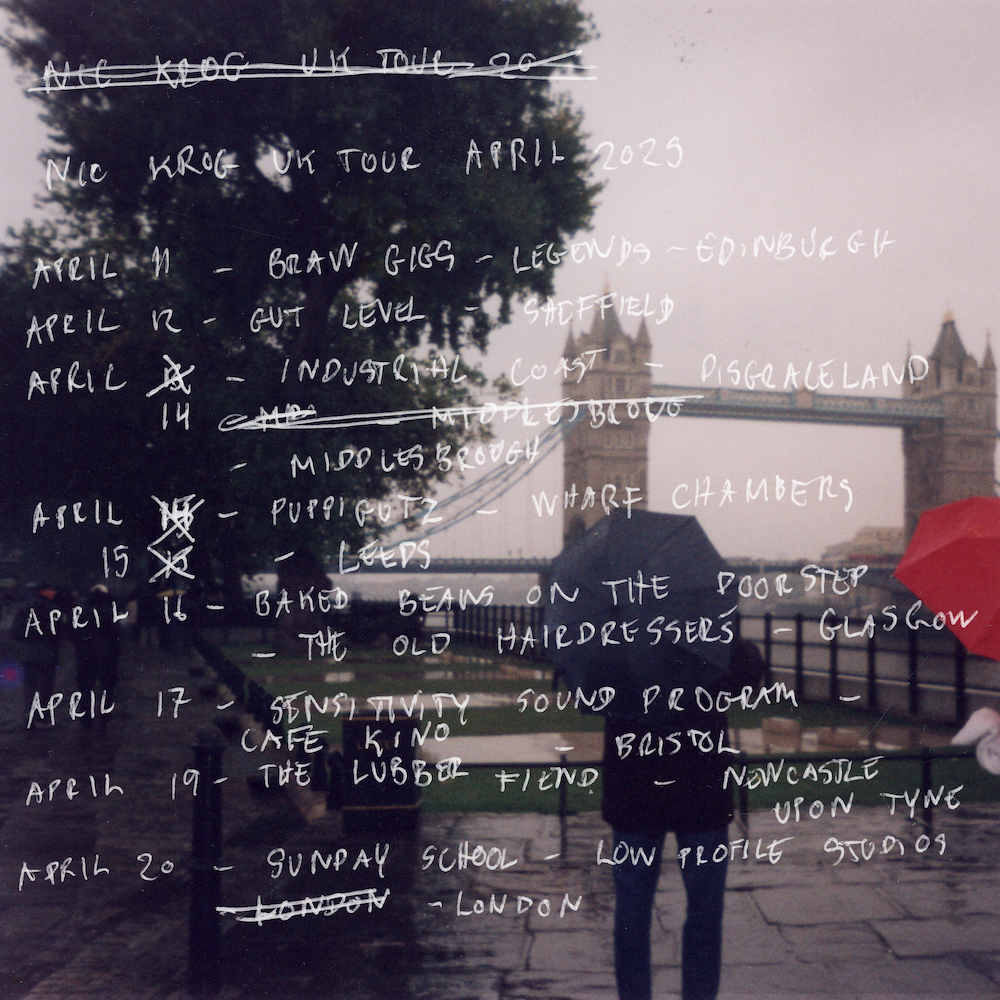 NIC KROG UK TOUR 20
NIC KROG UK TOUR APRIL 2025
APRIL 11 - BRAW GIGS - LEGENDS - EDINBURGH
APRIL 12 - GUT LEVEL - SHEFFIELD
APRIL - INDUSTRIAL COAST - DISGRACELAND
14 MIDDLESBROUG
- MIDDLESBROUGH
APRIL - PUPPIGUTZ - WHARF CHAMBERS
15 - LEEDS
APRIL 16 - BAKED BEANS ON THE DOORSTEP
- THE OLD HAIRDRESSERS - GLASGOW
APRIL 17 - SENSITIVITY SOUND PROGRAM -
CAFE KINO - BRISTOL
APRIL 19 - THE LUBBER FIEND - NEWCASTLE
UPON TYNE
APRIL 20 - SUNDAY SCHOOL - LOW PROFILE STUDIOS
- LONDON - LONDON